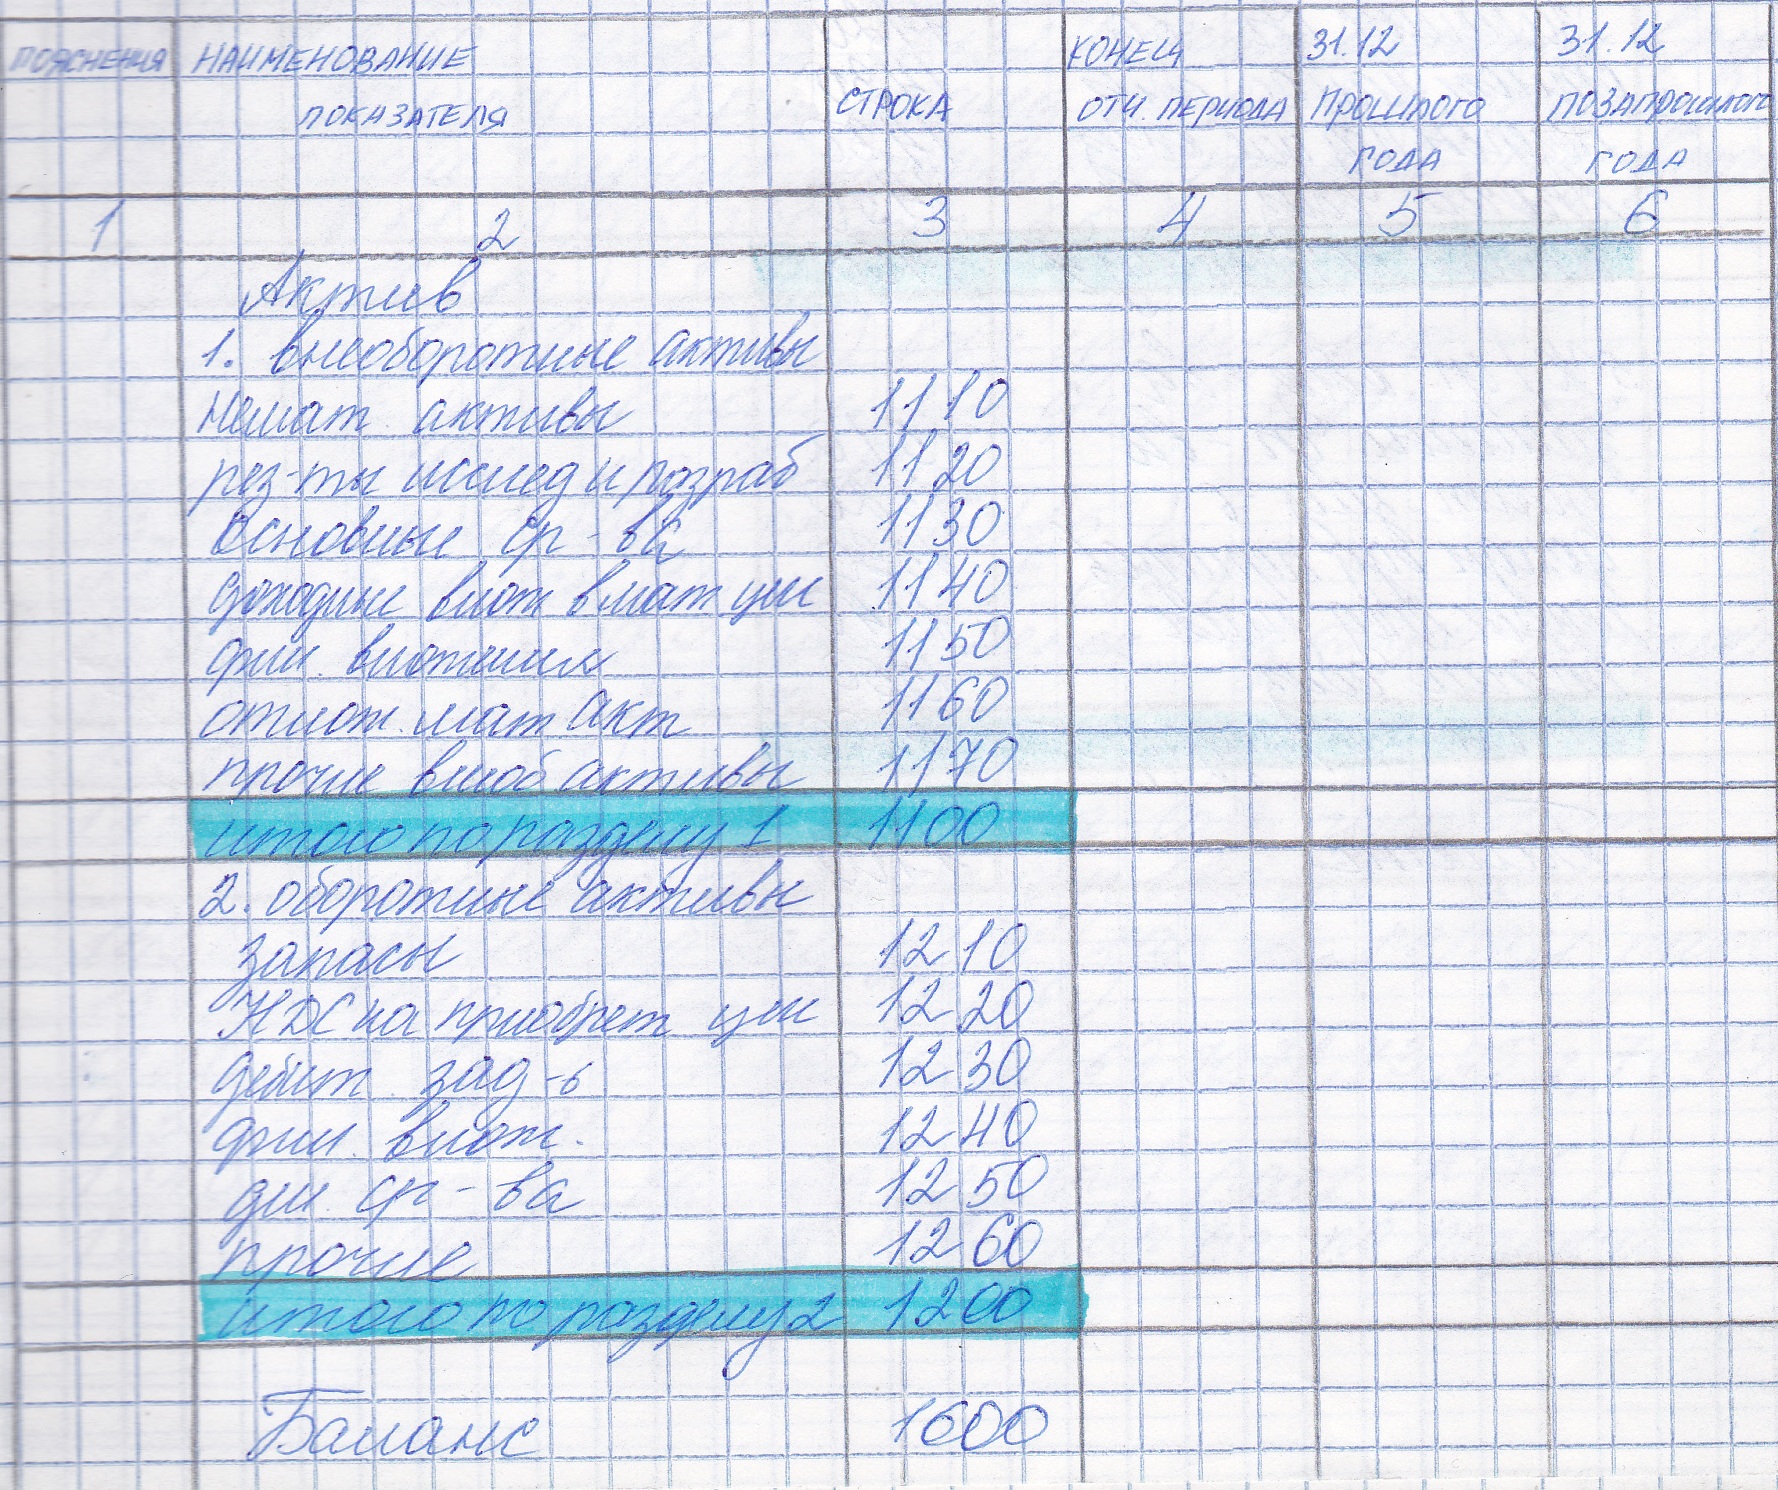 ПОЯСНЕНИЯ НАИМЕНОВАНИЕ ПОКАЗАТЕЛЯ СТРОКА КОНЕЦ ОТЧ. ПЕРИОДА 31.12 ПРОШЛОГО ГОДА 31.12 ПОЗАПРОШЛОГО ГОДА
1 2 3 4 5 6
Актив
1. внеоборотные активы
немат. активы 1110
рез-ты исслед и разраб 1120
основные ср-ва 1130
доходные влож в мат цен 1140
фин. вложения 1150
отлож. мат акт 1160
прочие внеоб активы 1170
итого по разделу 1 1100
2. оборотные активы
запасы 1210
НДС на приобрет цен 1220
дебит. зад-ь 1230
фин. влож. 1240
ден. ср-ва 1250
прочие 1260
итого по разделу 2 1200
Баланс 1600